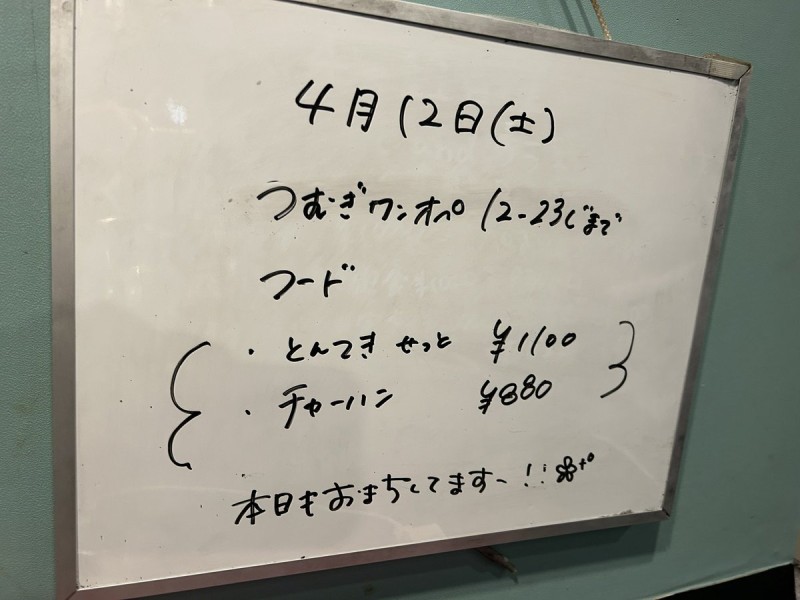 4月12日(土)
つむぎワンオペ 12-23じまで
フード
・とんてきせっと ¥1100
・チャーハン ¥880
本日もおまちしてます~!!